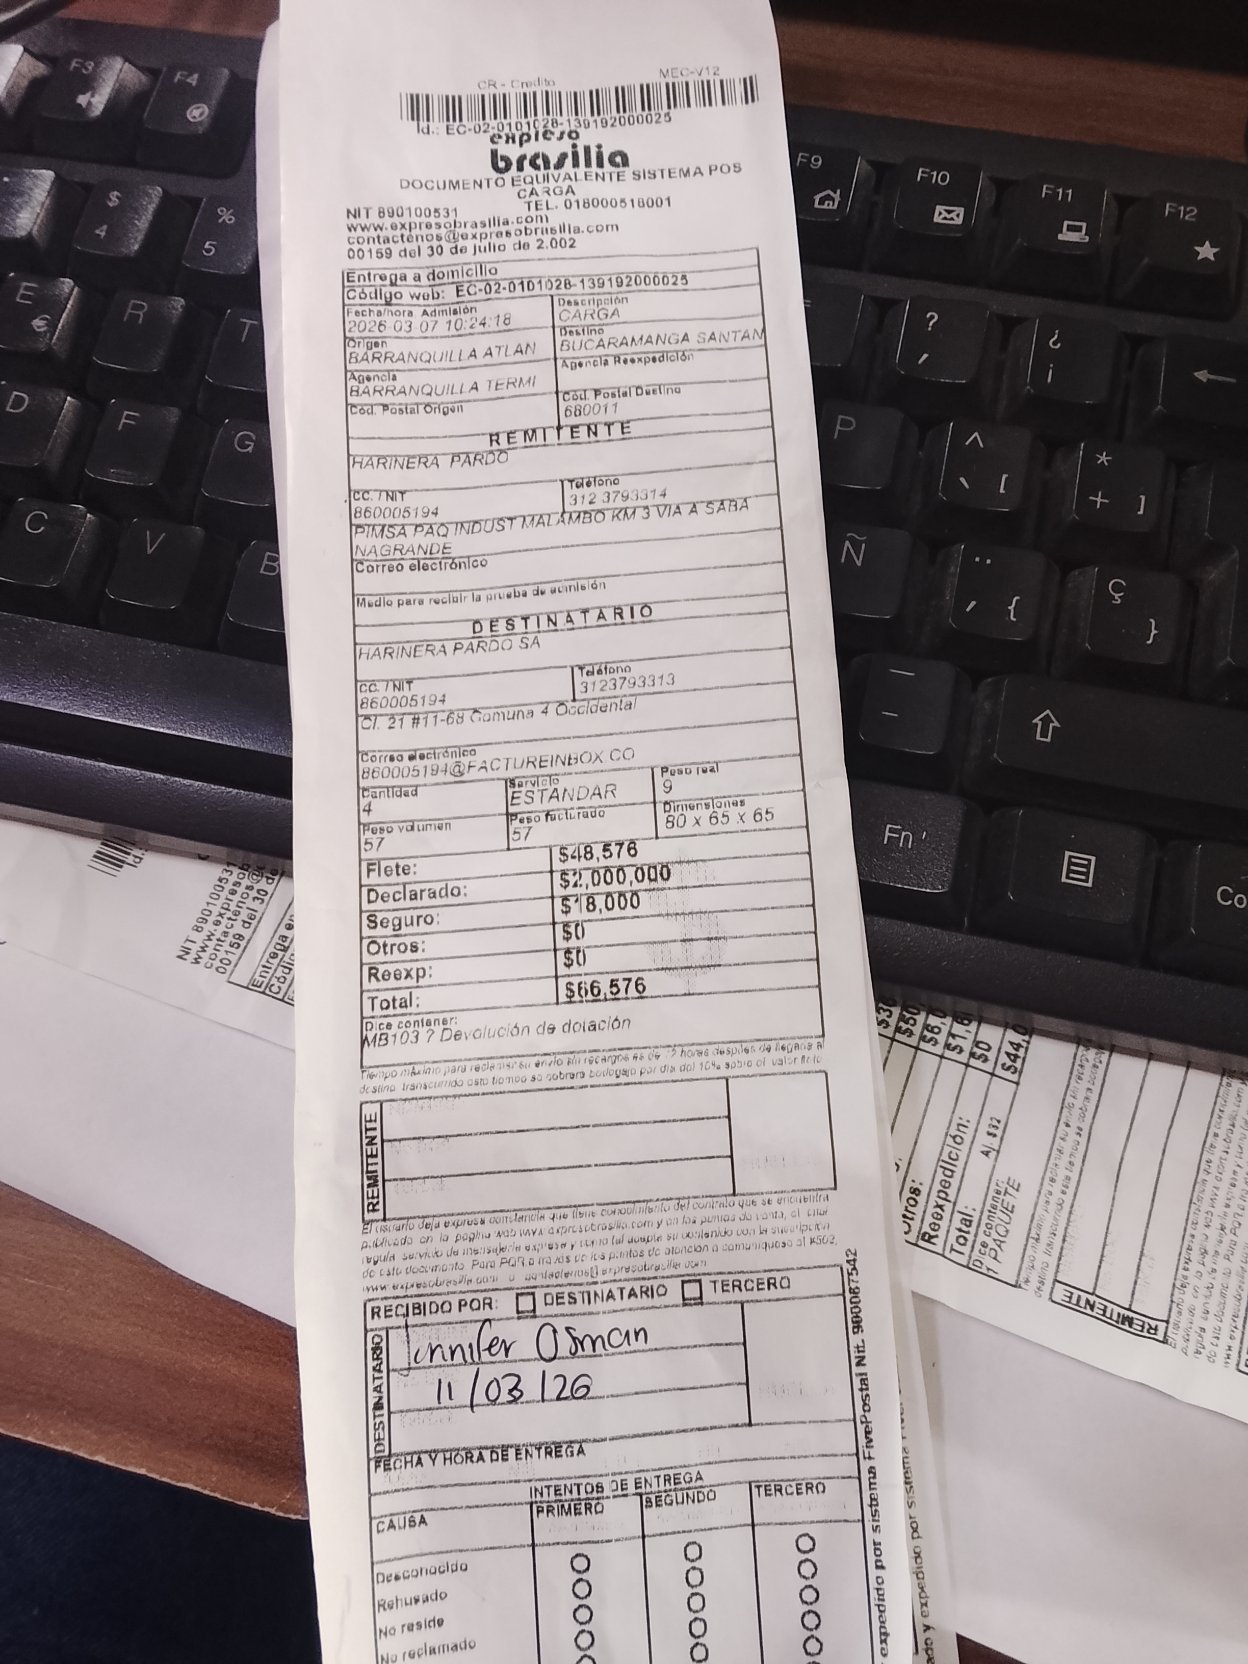 CR - Credito MEC-V12
Id.: EC-02-0101028-139192000025
expreso
brasilia
DOCUMENTO EQUIVALENTE SISTEMA POS
CARGA
NIT 890100531 TEL. 018000518001
www.expresobrasilia.com
contactenos@expresobrasilia.com
00159 del 30 de julio de 2.002
Entrega a domicilio
Código web: EC-02-0101028-139192000025
Fecha/hora Admisión Descripción
2026-03-07 10:24:18 CARGA
Origen Destino
BARRANQUILLA ATLAN BUCARAMANGA SANTAN
Agencia Agencia Reexpedición
BARRANQUILLA TERMI
Cod. Postal Origen Cód. Postal Destino
680011
REMITENTE
HARINERA PARDO
CC. / NIT Teléfono
860005194 312 3793314
PIMSA PAQ INDUST MALAMBO KM 3 VIA A SABA
NAGRANDE
Correo electrónico
Medio para recibir la prueba de admisión
DESTINATARIO
HARINERA PARDO SA
CC. / NIT Teléfono
860005194 3123793313
Cl. 21 #11-68 Comuna 4 Occidental
Correo electrónico
860005194@FACTUREINBOX CO
Cantidad Servicio Peso real
4 ESTANDAR 9
Peso volumen Peso facturado Dimensiones
57 57 80 x 65 x 65
Flete: $48,576
Declarado: $2,000,000
Seguro: $18,000
Otros: $0
Reexp: $0
Total: $66,576
Dice contener:
MB103 ? Devolución de dotación
Tiempo máximo para reclamar su envío sin recargos es de 72 horas después de llegada al
destino, transcurrido este tiempo se cobrará bodegaje por día del 10% sobre el valor flete
REMITENTE
El usuario deja expresa constancia que tiene conocimiento del contrato que se encuentra
publicado en la pagina web www.expresobrasilia.com y en los puntos de venta, el cual
regula servicio de mensajería expresa y como tal acepta su contenido con la suscripción
de este documento. Para PQR a través de los puntos de atención o comuníquese al #502,
www.expresobrasilia.com o contactenos@expresobrasilia.com
RECIBIDO POR: DESTINATARIO TERCERO
DESTINATARIO
Jennifer Osman
11/03/26
FECHA Y HORA DE ENTREGA
INTENTOS DE ENTREGA
CAUSA PRIMERO SEGUNDO TERCERO
Desconocido
Rehusado
No reside
No reclamado
expedido por sistema FivePostal Nit. 900087542
ado y expedido por sistema
NIT 890100531
www.expresob
contactenos@e
00159 del 30 de
Entrega en
Códi
Id.:
$50,
$6,0
$1,6
$0
$44,0
Otros:
Reexpedición:
Total: Aj. $32
Dice contener:
1 PAQUETE
REMITENTE
F3
F4
$ 4
% 5
E €
R
T
D
F
G
C
V
B
F9
F10
F11
F12
? ,
¿ ¡
P
^ ` [
* + ]
Ñ
¨ ´ {
Ç }
_ -
Fn
Co